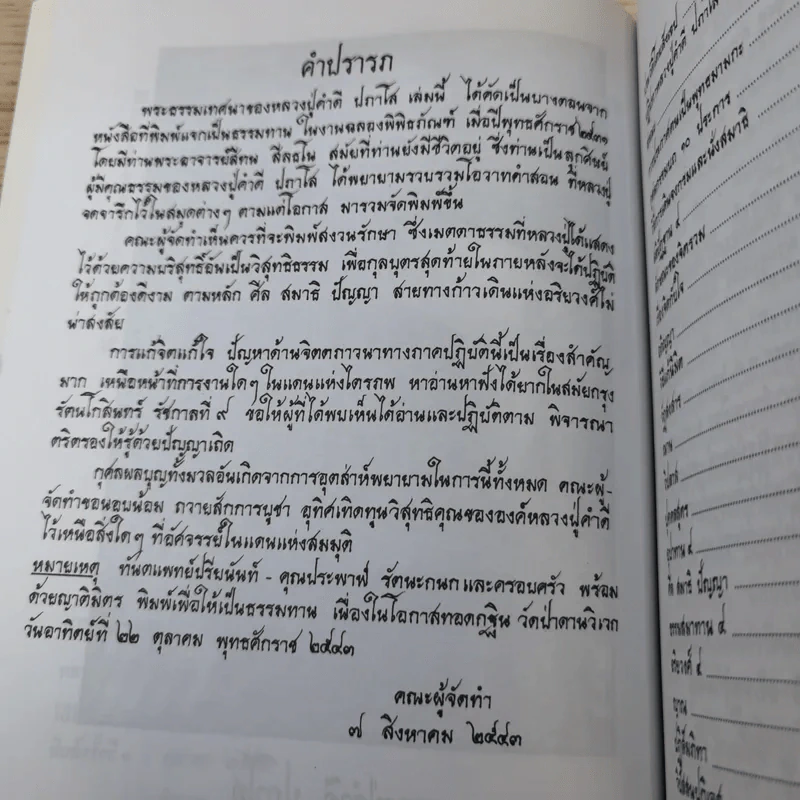 คำปรารภ
พระธรรมเทศนาของหลวงปู่คำดี ปภาโส เล่มนี้ ได้คัดเป็นบางตอนจาก
หนังสือที่พิมพ์แจกเป็นธรรมทาน ในงานฉลองพิพิธภัณฑ์ เมื่อปีพุทธศักราช ๒๕๓๑
โดยมีท่านพระอาจารย์สีทน สีลธโน สมัยที่ท่านยังมีชีวิตอยู่ ซึ่งท่านเป็นลูกศิษย์
ผู้มีคุณธรรมของหลวงปู่คำดี ปภาโส ได้พยายามรวบรวมโอวาทคำสอน ที่หลวงปู่
จดจารึกไว้ในสมุดต่างๆ ตามแต่โอกาส มารวมจัดพิมพ์ขึ้น
คณะผู้จัดทำเห็นควรที่จะพิมพ์สงวนรักษา ซึ่งเมตตาธรรมที่หลวงปู่ได้แสดง
ไว้ด้วยความบริสุทธิ์อันเป็นวิสุทธิธรรม เพื่อกุลบุตรสุดท้ายในภายหลังจะได้ปฏิบัติ
ให้ถูกต้องดีงาม ตามหลัก ศีล สมาธิ ปัญญา สายทางก้าวเดินแห่งอริยวงศ์ไม่
น่าสงสัย
การแก้จิตแก้ใจ ปัญหาด้านจิตตภาวนาทางภาคปฏิบัตินี้เป็นเรื่องสำคัญ
มาก เหนือหน้าที่การงานใดๆ ในแดนแห่งไตรภพ หาอ่านหาฟังได้ยากในสมัยกรุง
รัตนโกสินทร์ รัชกาลที่ ๙ ขอให้ผู้ที่ได้พบเห็นได้อ่านและปฏิบัติตาม พิจารณา
ตริตรองให้รู้ด้วยปัญญาเถิด
กุศลผลบุญทั้งมวลอันเกิดจากการอุตสาห์พยายามในการนี้ทั้งหมด คณะผู้-
จัดทำขอนอบน้อม ถวายสักการบูชา อุทิศเทิดทูนวิสุทธิคุณขององค์หลวงปู่คำดี
ไว้เหนือสิ่งใดๆ ที่อัศจรรย์ในแดนแห่งสมมุติ
หมายเหตุ ทันตแพทย์ปรียนันท์ - คุณประพาฬ รัตนะกนก และครอบครัว พร้อม
ด้วยญาติมิตร พิมพ์เพื่อให้เป็นธรรมทาน เนื่องในโอกาสทอดกฐิน วัดป่าดานวิเวก
วันอาทิตย์ที่ ๒๒ ตุลาคม พุทธศักราช ๒๕๔๓
คณะผู้จัดทำ
๗ สิงหาคม ๒๕๔๓
ปู่คำดี ปภาโส
เป็นพุทธมามกะ
๑๐ ประการ
และนั่งสมาธิ
มาน
บุคคลสูตร
อุปาทาน ๔
สมาธิ ปัญญา
ธรรมสมาทาน ๔
อริยวงศ์ ๔
ญาณ